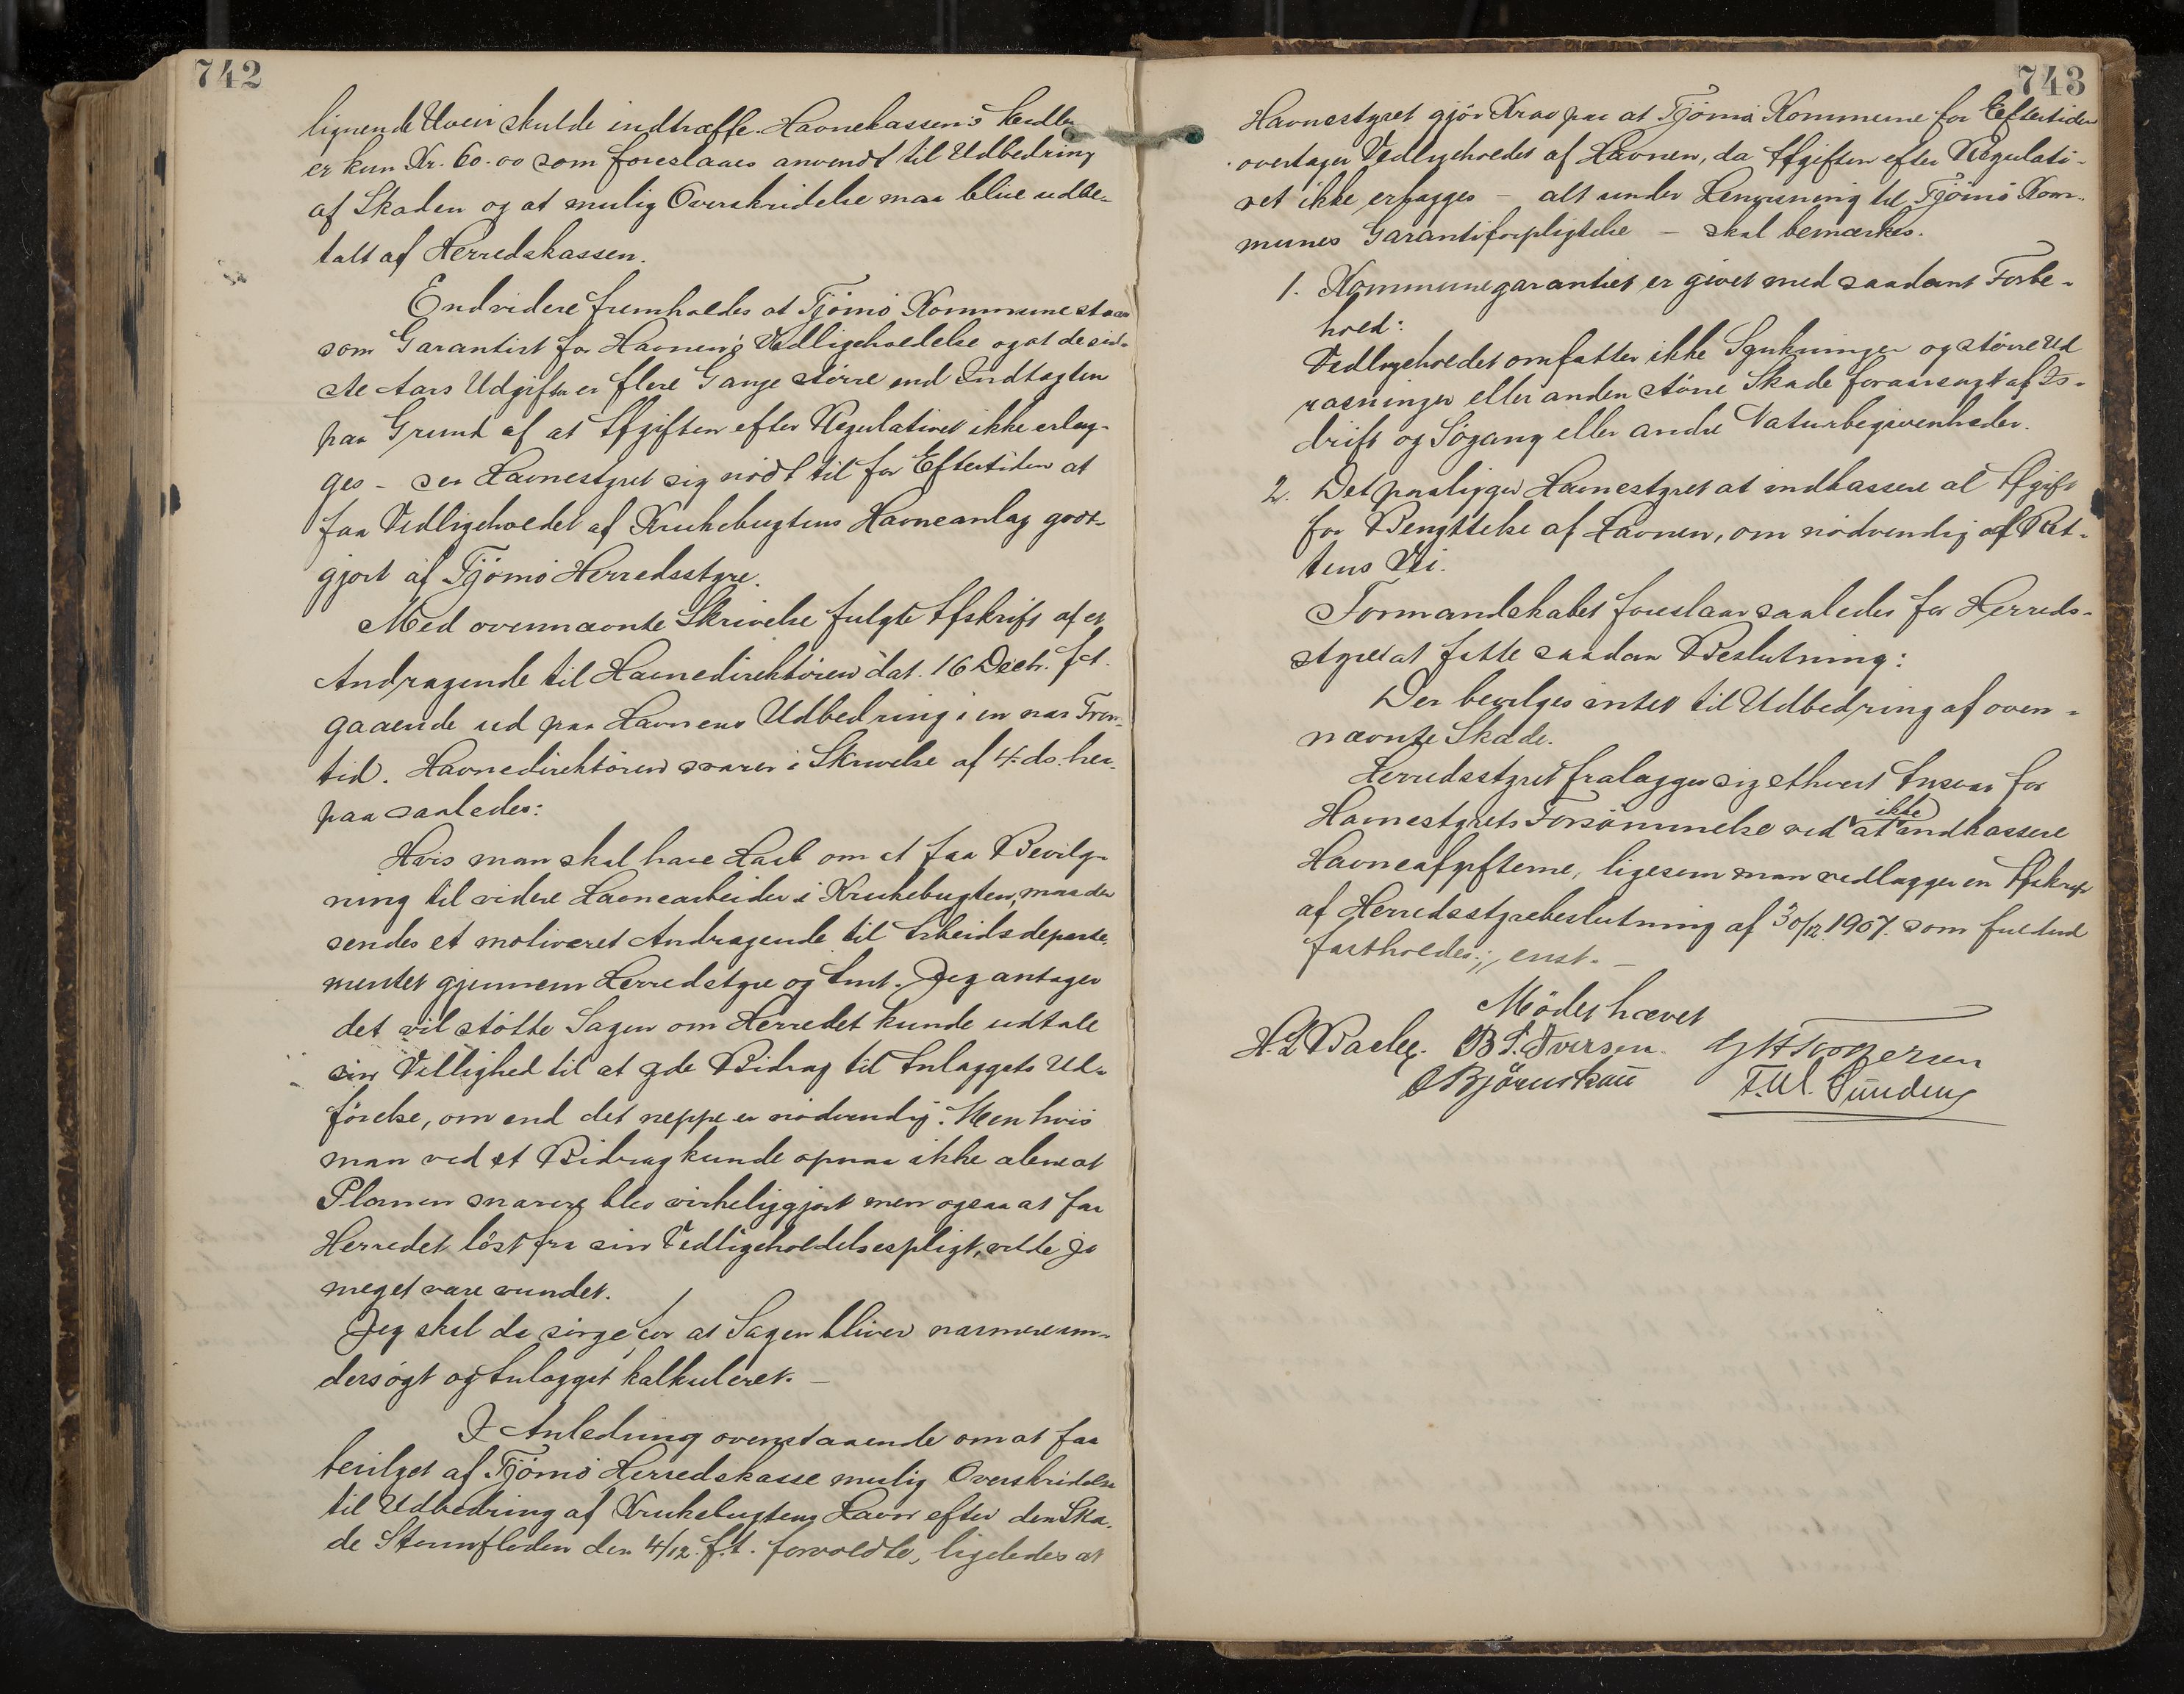 742
lignende Uveir skulde indtræffe. Havnekassen's Midler
er kun Kr. 60.00 som foreslaaes anvendt til Udbedring
af Skaden og at mulig Overskridelse maa blive udbe-
talt af Herredskassen.
Endvidere fremholdes at Tjömö Kommune staar
som Garantist for Havnen's Vedligeholdelse og at de sid-
ste Aars Udgifter er flere Gange större end Indtægten
paa Grund af at Afgiften efter Regulativet ikke erlæg-
ges - ser Havnestyret sig nödt til for Eftertiden at
faa Vedligeholdet af Krukebugtens Havneanlæg godt-
gjort af Tjömö Herredsstyre.
Med ovennævnte Skrivelse fulgte Afskrift af et
Andragende til Havnedirektören dat. 16 Decbr. f.A.
gaaende ud paa Havnens Udbedring i en nær Frem-
tid. Havnedirektören svarer i Skrivelse af 4. ds. her-
paa saaledes:
Hvis man skal have Haab om at faa Bevilg-
ning til videre Havnearbeider i Krukebugten, maa der
sendes et motiveret Andragende til Arbeidsdeparte-
mentet gjennem Herredstyre og Amt. Jeg antager
det vil stötte Sagen om Herredet kunde udtale
sin Villighed til at yde Bidrag til Anlæggets Ud-
förelse, om end det neppe er nödvendig. Men hvis
man ved et Bidrag kunde opnaa ikke alene at
Planen snarere blev virkeliggjort men ogsaa at faa
Herredet löst fra sin Vedligeholdelsespligt, vilde jo
meget være vundet.
Jeg skal da sörge for at Sagen bliver nærmere un-
dersögt og Anlægget kalkuleret. -
I Anledning ovenstaaende om at faa
bevilget af Tjömö Herredskasse mulig Overskridelse
til Udbedring af Krukebugtens Havn efter den Ska-
de Stormfloden den 4/12. f.A. forvoldte, ligeledes at
743
Havnestyret gjör Krav paa at Tjömö Kommune for Eftertiden
overtager Vedligeholdet af Havnen, da Afgiften efter Regulati-
vet ikke erlægges - alt under Henvisning til Tjömö Kom-
munes Garantiforpligtelse - skal bemærkes.
1. Kommunegarantiet er givet med saadant Forbe-
hold:
Vedligeholdet omfatter ikke Synkninger og större Ud
rasninger eller anden större Skade foraarsaget af Is-
drift og Sögang eller andre Naturbegivenheder.
2. Det paaligger Havnestyret at indkassere al Afgift
for Benyttelse af Havnen, om nödvendig af Ret-
tens Vei.
Formandskabet foreslaar saaledes for Herreds-
styret at fatte saadan Beslutning:
Der bevilges intet til Udbedring af oven-
nævnte Skade.
Herredsstyret fralægger sig ethvert Ansvar for
Havnestyrets Forsömmelse ved ikke at indkassere
Havneafgifterne, ligesom man vedlægger en Afskrift
af Herredsstyrebeslutning af 30/12. 1907. som fuldtud
fastholdes; enst. -
Mödet hævet
H. L. Bache. B S. Iversen.
O Björnskau F. M. Sundene